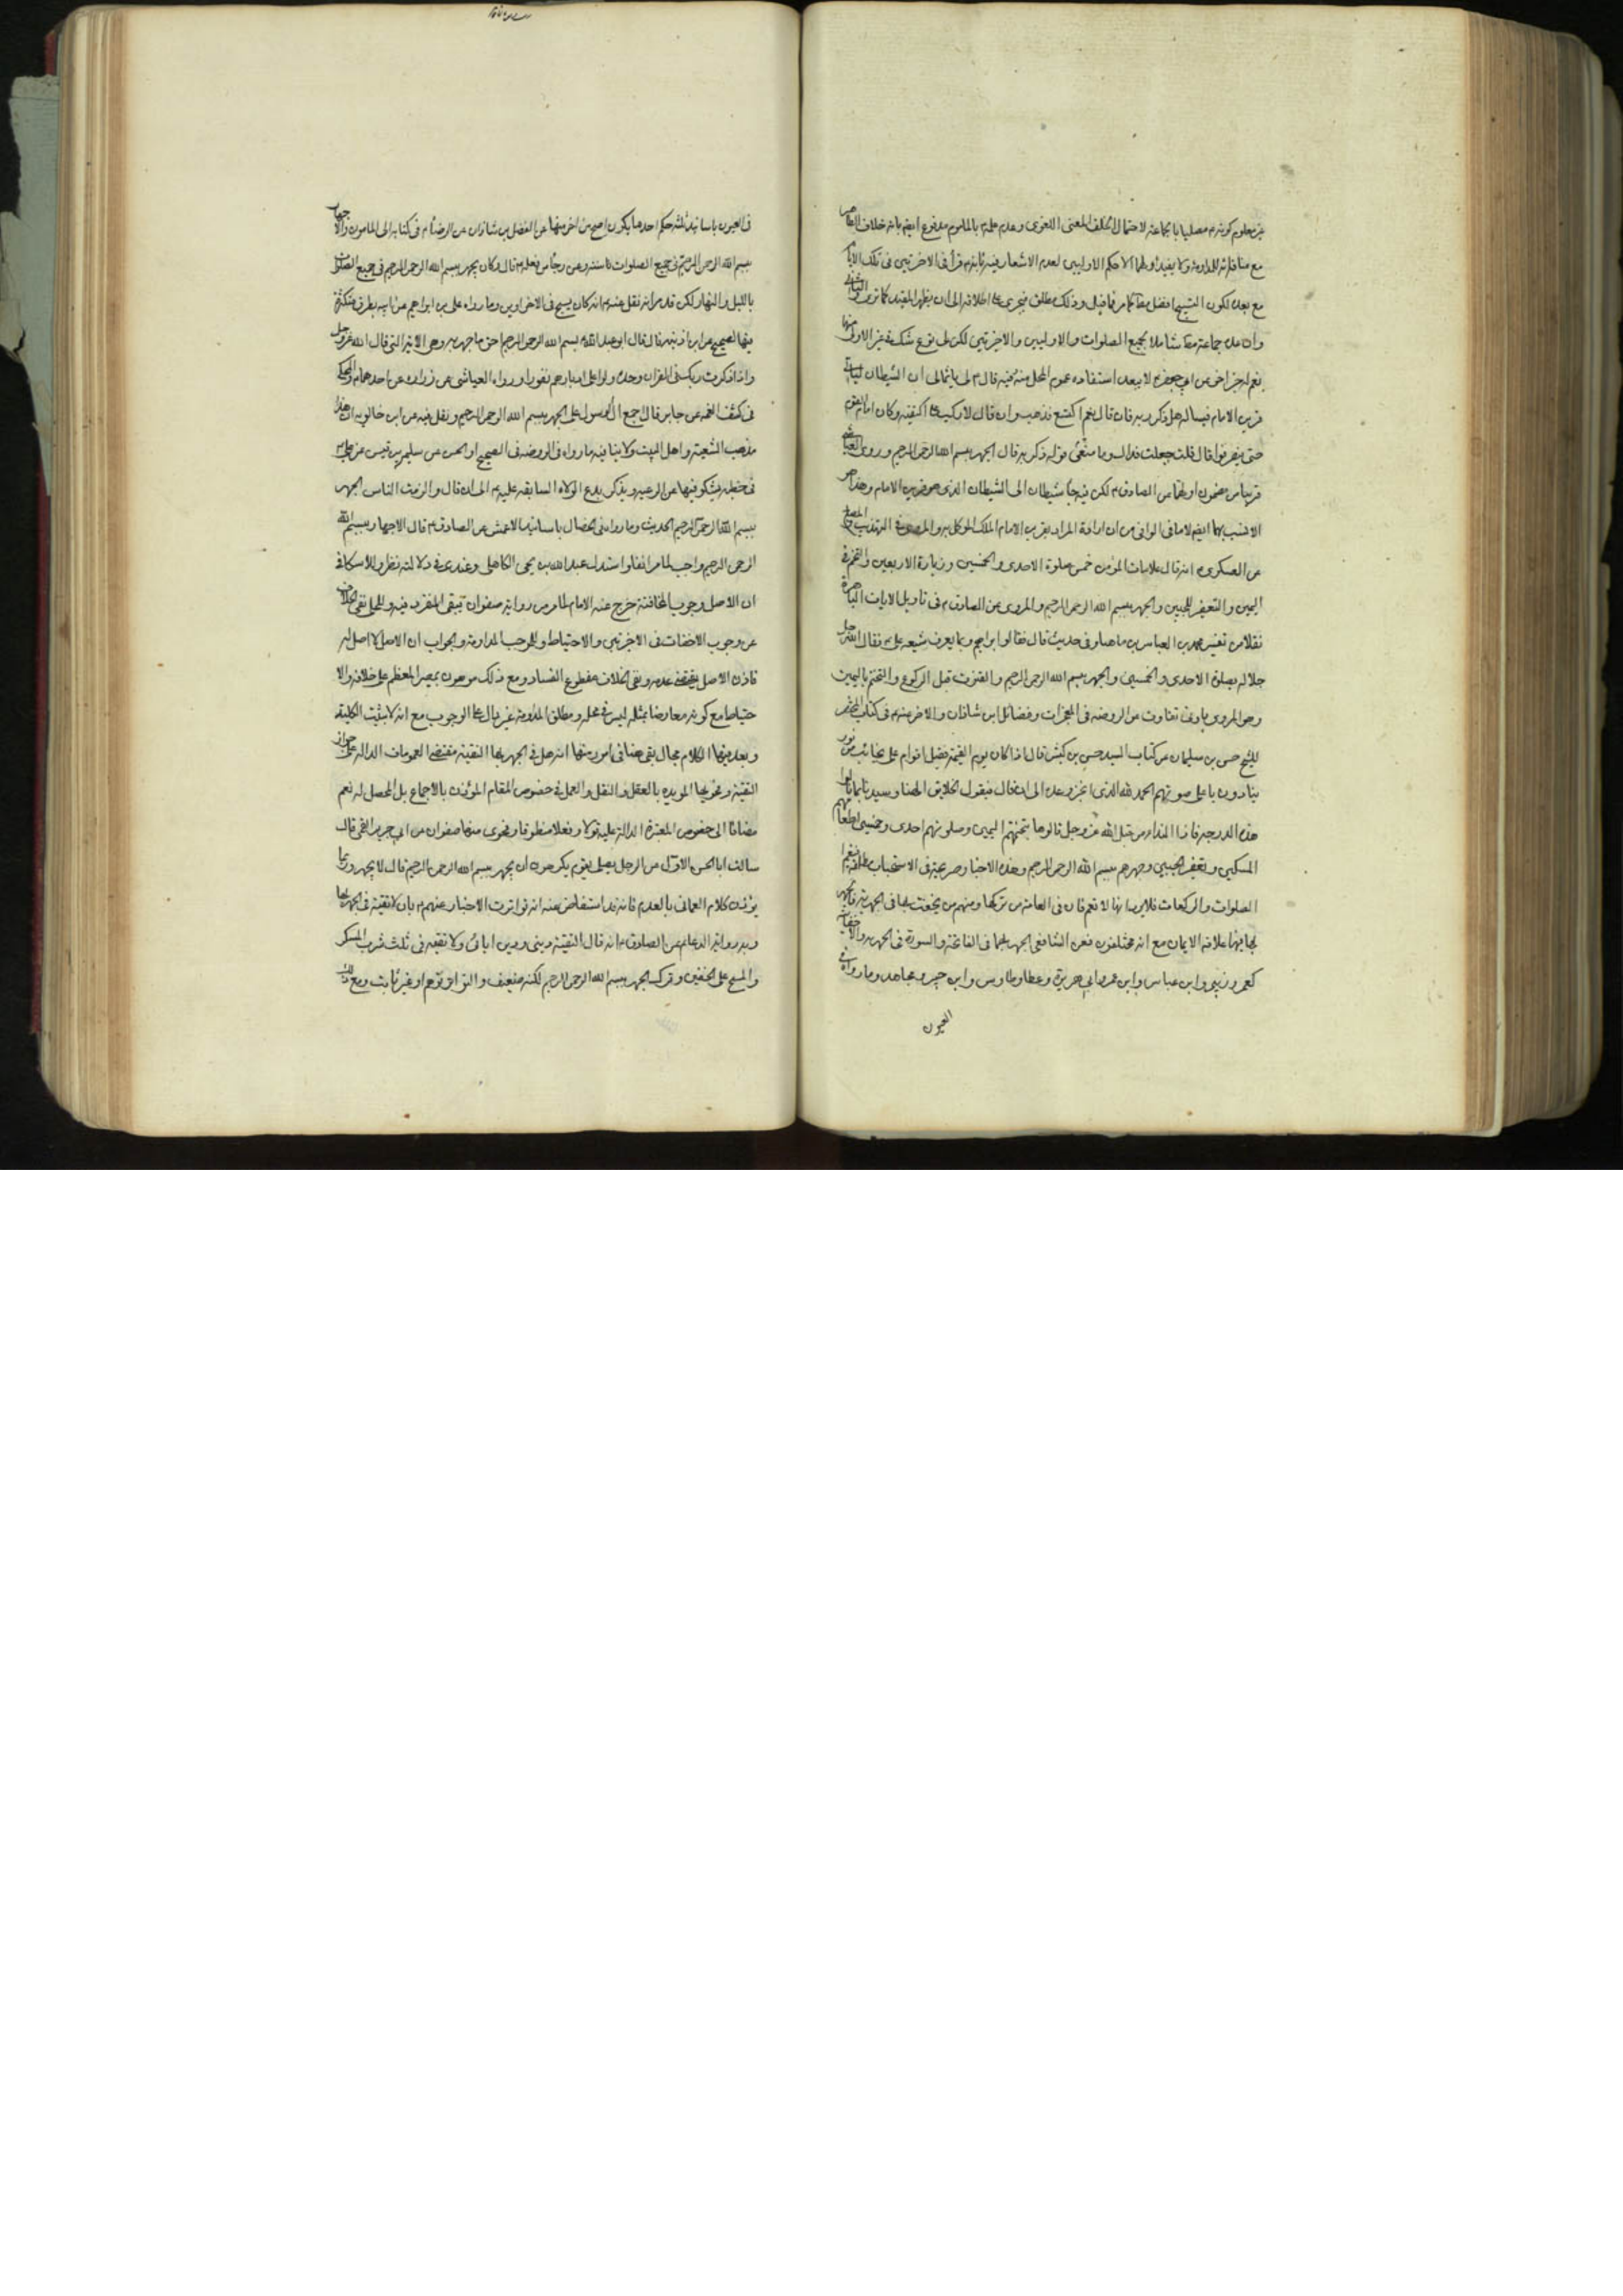 غير معلوم كونه م مصليا بالجماعة لاحتمال المعنى اللغوى وعدم علمه بالماموم مدفوع ايضا بانه خلاف الظاهر
مع منافاته للمداومة ولا يفيد اولهما الا حكم الاوليين لعدم الاشعار فيه بانه م قرأ فى الاخرتين فى تلك الايام
مع بعده لكون التسبيح افضل مطلقا كما مر فما قيل وذلك مطلق فيجرى على اطلاقه الى ان يظهر المقيد كما ترى
وان عد جماعة شاملا بجميع الصلوات والاوليين والاخرتين لكن لم يقع شك فى غير الاولى منها
نعم فى خبر اخر عن ابى جعفر م لا يبعد استفاده عموم المحل منه ففيه قال م لى يا ثمالى ان الشيطان لياتى
قرين الامام فيساله هل ذكر ربه فان قال نعم اكتسع فذهب وان قال لا ركب على كتفيه وكان امام القوم
حتى ينصرفوا قال قلت جعلت فداك وما معنى قوله ذكر ربه قال الجهر ببسم الله الرحمن الرحيم وروى العياشى
قريبا من مضمون اولهما عن الصادق م لكن فيه جاء شيطان الى الشيطان الذى هو قرين الامام وهذا هو
الانسب بهما ايضا لا ما فى الوافى من ان ارادة المراد بقرين الامام الملك الموكل به والمروى فى التهذيب والمصباح
عن العسكرى م انه قال علامات المؤمن خمس صلوة الاحدى والخمسين وزيارة الاربعين والتختم فى
اليمين والتعفير للجبين والجهر ببسم الله الرحمن الرحيم والمروى عن الصادق م فى تاويل الايات الباهرة
نقلا من تفسير محمد بن العباس بن ماهيار فى حديث قال فقال ابراهيم وبما يعرف شيعة على م فقال الله جل
جلاله بصلوة الاحدى والخمسين والجهر ببسم الله الرحمن الرحيم والقنوت قبل الركوع والتختم باليمين
وهو المروى بادنى تفاوت عن الروضه فى المعجزات وفضائل ابن شاذان والاخر منهم فى كتاب المحتضر
للشيخ حسن بن سليمان من كتاب السيد حسن بن كبش قال اذا كان يوم القيمة تقبل اقوام على نجائب من نور
ينادون باعلى صوتهم الحمد لله الذى انجز وعده الى ان قال فيقول الخلايق الهنا وسيدنا بما نالوا
هذه الدرجة فاذا النداء من قبل الله عز وجل نالوها بتختمهم اليمين وصلوتهم احدى وخمسين واطعامهم
المسكين وتعفيرهم الجبين وجهرهم ببسم الله الرحمن الرحيم وهذه الاخبار صريحة فى الاستحباب مطلقا
الصلوات والركعات فلا بد انها لا تعم فان فى العامة من تركها ومنهم من يخفت بها فى الجهرية فالجهر
بها فيها علامة الايمان مع انه مختلفون فعن الشافعى الجهر بها فى الفاتحة والسورة فى الجهرية والاخفاتية
كعمر وزبير وابن عباس وابن عمر وابى هريرة وعطا وطاوس وابن جبير ومجاهد وما رواه فى
العيون
فى العيون باسانيد ثلثة حكم احدها بكون اصح من اخر منها عن الفضل بن شاذان عن الرضا م فى كتابه الى المامون والاجهار
ببسم الله الرحمن الرحيم فى جميع الصلوات سنة وعن رجاء من فعله م قال وكان يجهر ببسم الله الرحمن الرحيم فى جميع الصلوات
بالليل والنهار لكن قد مر انه نقل عنه م انه كان يسبح فى الاخراوين وما رواه على بن ابراهيم عن ابيه بطرق متكثرة
منها الصحيح عن ابن اذينة قال قال ابو عبد الله م بسم الله الرحمن الرحيم احق ما جهر به وهى الاية التى قال الله عز وجل
واذا ذكرت ربك فى القران وحده ولوا على ادبارهم نفورا ورواه العياشى عن زرارة عن احدهما م والمحكى
فى كشف الغمه عن جابر قال اجمع ال الرسول على الجهر ببسم الله الرحمن الرحيم ونقل فيه عن ابن خالويه ان هذا
مذهب الشيعة واهل البيت ولا ينافيه ما رواه فى الروضه فى الصحيح او الحسن عن سليم بن قيس عن على م
فى خطبة يشكو فيها عن الرعية ويذكر بدع الولاة السابقه عليه م الى ان قال والزمت الناس الجهر
ببسم الله الرحمن الرحيم الحديث وما رواه فى الخصال باسانيد الاعمش عن الصادق م قال الاجهار ببسم الله
الرحمن الرحيم واجب لما مر انفا واستدل عبد الله بن يحيى الكاهلى وعندى فى دلالته نظر وللاسكافى
ان الاصل وجوب المخافتة خرج عنه الامام لما مر من رواية صفوان تبقى المنفرد فيه وللحلى نفى الخلاف
عن وجوب الاخفات فى الاخرتين والاحتياط وللموجب المداومة والجواب ان الاصل لا اصل له
فان الاصل يقتضى عدمه ونفى الخلاف مقطوع الفساد ومع ذلك موهون بمصير المعظم على خلافه والا
حتياط مع كونه معارضا بمثله ليس فى محله ومطلق المداومة غير دال على الوجوب مع انه لا يثبت الكلية
وبعد فيها الكلام مجال بقى هنا فى امور منها انه هل فى الجهر بها التقية مقتضى العمومات الدالة على جواز
التقية ونحوها المويده بالعقل والنقل والعمل فى خصوص المقام المؤذن بالاجماع بل المحصل له نعم
مضافا الى خصوص المعتبرة الدالة عليه قولا وفعلا منطوقا وفحوى منها صفوان عن ابى جرير القمى قال
سالت ابا الحسن الاول عن الرجل يصلى بقوم يكرهون ان يجهر ببسم الله الرحمن الرحيم قال لا يجهر وربما
يؤذن كلام العمانى بالعدم فانه قد استفاض عنه انه تواترت الاخبار عنهم م بان لا تقية فى الجهر بها
وبه رواية الدعائم عن الصادق م انه قال التقية دينى ودين ابائى ولا تقية فى ثلث شرب المسكر
والمسح على الخفين وترك الجهر ببسم الله الرحمن الرحيم لكنه ضعيف والتواتر توهم او غير ثابت ومع ذلك